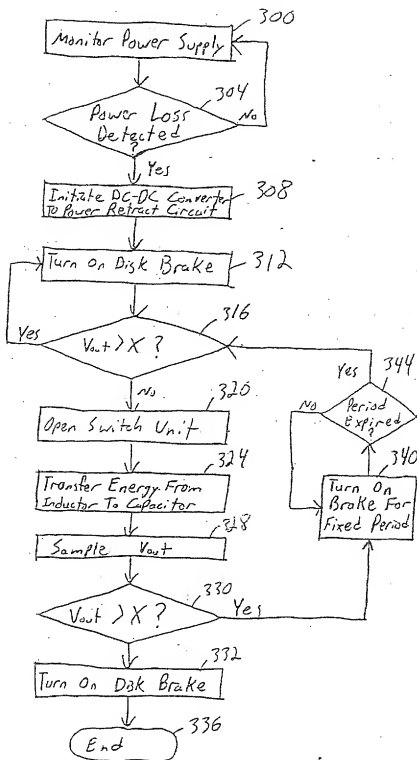 300
Monitor Power Supply
304
Power Loss
Detected
?
No
Yes
308
Initiate DC-DC Converter
To Power Retract Circuit
312
Turn On Disk Brake
316
Vout > X ?
Yes
No
320
Open Switch Unit
324
Transfer Energy From
Inductor To Capacitor
328
Sample Vout
330
Vout > X ?
Yes
332
Turn On Disk Brake
336
End
344
Yes
Period
Expired
?
No
340
Turn On
Brake For
Fixed Period